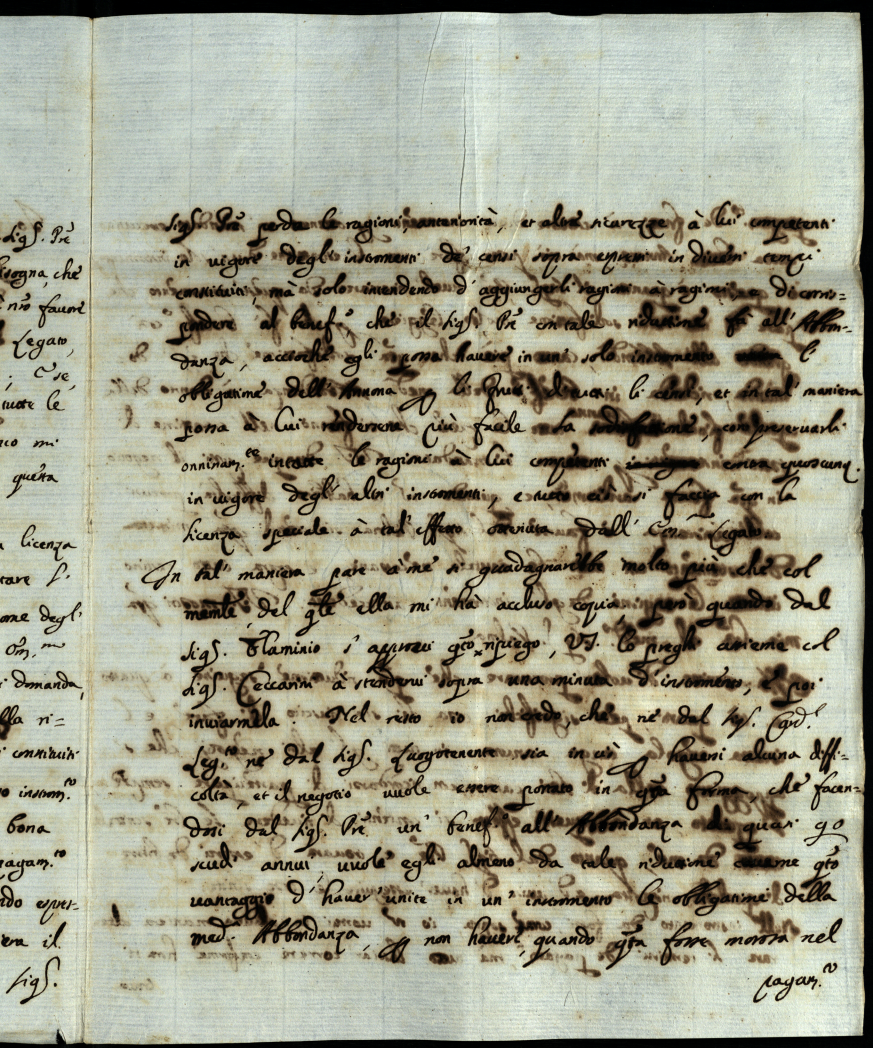 Sig.r P're
isogna, che
n'ro favore
Legato,
; E se
tutte le
mi
questa
licenza
tare l'
ome degl'
om.m
domanda,
lla ri=
constituiti
instrom.to
bona
pagam.to
ndo espres-
era il
Sig.r
Sig.r P're perda le ragioni, anteriorità, et altre sicurezze à lui competenti
in vigore degl'instromenti de' censi sopra espressi in diversi tempi
constituiti, mà solo intendendo d'aggiungerli ragioni à ragioni, e di corris=
pondere al benef.o, che il Sig.r P're con tale riduttione fà all'Abbon-
danza, accioche egli possa havere in un' solo instromento l'
obbligatione dell'Annona p li frutti di tutti li censi, et in tal' maniera
possa à lui rendersene più facile la sodisfattione, con preservarli
onninam.te intatte le ragioni à lui competenti contra quoscunq.
in vigore degl'altri instromenti, e tutto ciò si faccia con la
licenza speciale à tal'effetto ottenuta dall' Em. Legato
In tal' maniera pare à me si guadagnarebbe molto più che col
mem.le, del q'le ella mi hà accluso copia, però quando dal
Sig.r Flaminio s'approvi q'to ripiego, V.S. lo preghi assieme col
Sig.r Ceccarini à stendervi sopra una minuta d'instromento, e poi
inviarmela Nel resto io non credo, che nè dal Sig.r Card.l
Leg.to nè dal Sig.r Luogotenente sia in ciò p haversi alcuna diffi=
coltà, et il negotio vuole essere portato in q'ta forma, che facen=
dosi dal Sig.r P're un' benef.o all'Abbondanza di quasi 90
scudi annui, vuole egli almeno da tale riduttione q'to
vantaggio d'haver' unite in un' instromento le obbligationi della
med.a Abbondanza, p non haver, quando q'ta fosse morosa nel
pagam.to